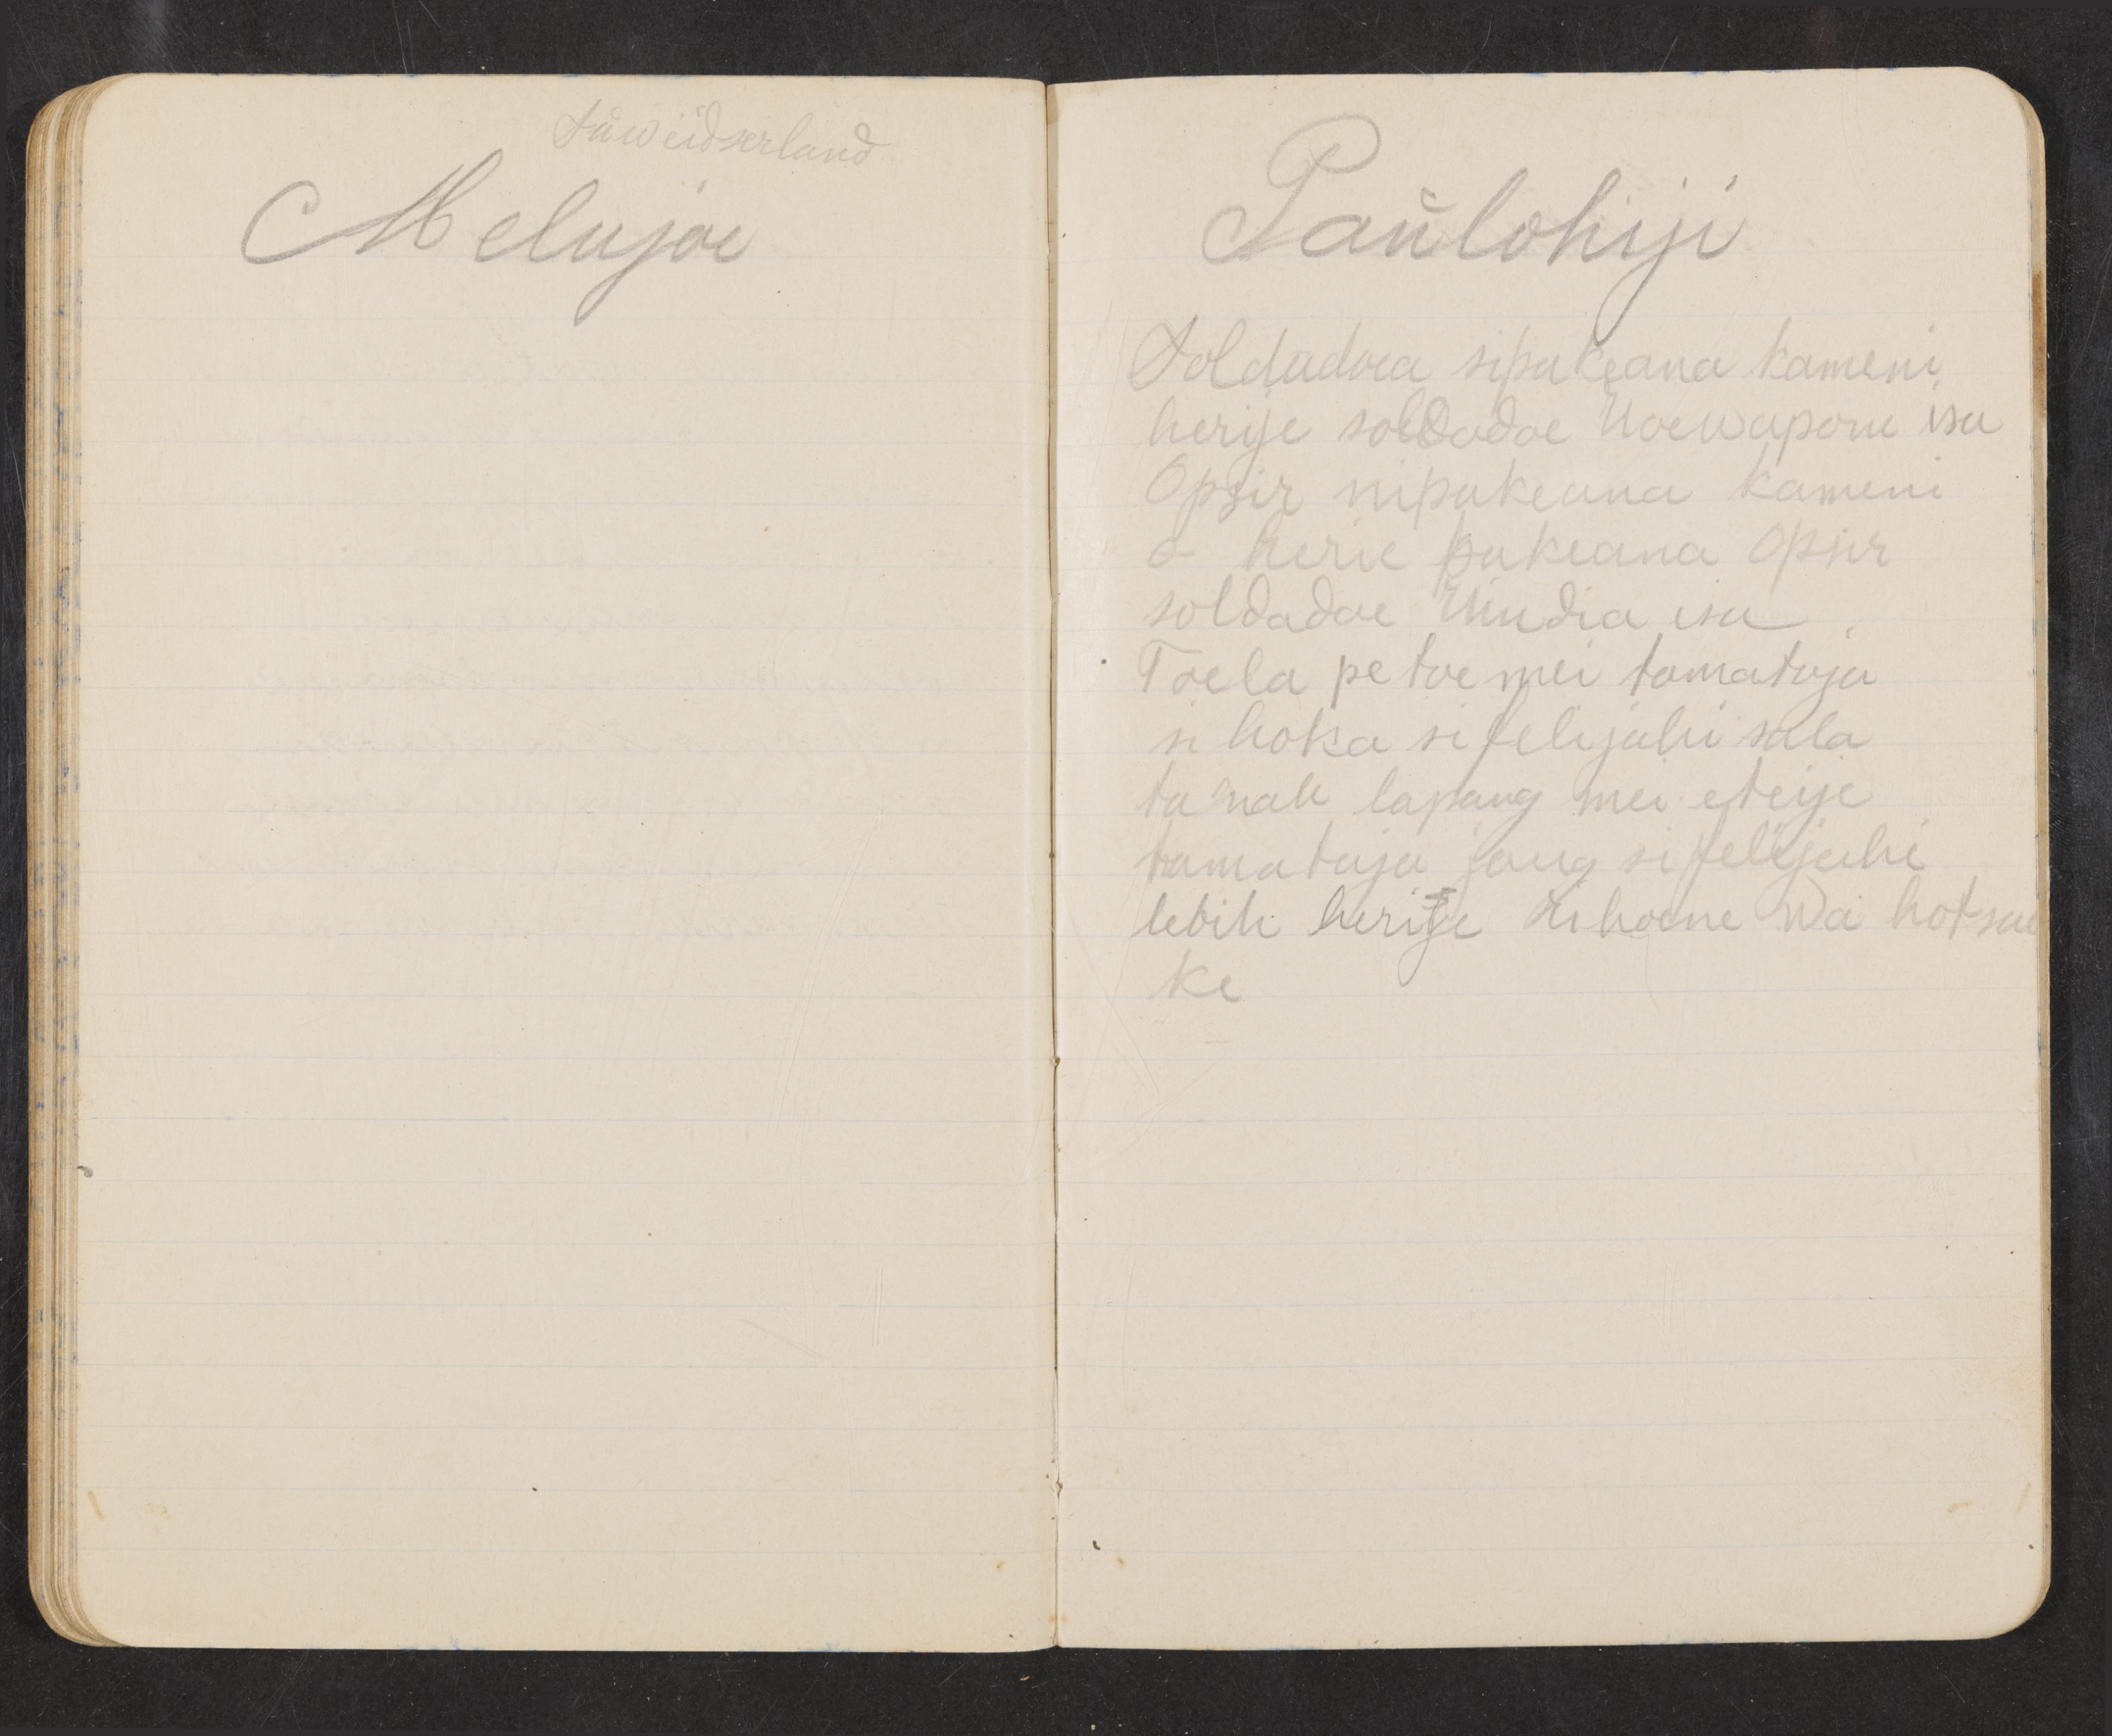 Suweidserland
Melujoe
Paŭlohiji
Soldadoea sipakeana kameni
herije soldadoe Noewapone isa
Opsir nipakeana kameni
o herie pakeana Opsir
soldadoe Hindia isa
Toela petoe mei tamataja
si hoka si felijahi sala
tanah lapang mei eteije
tamataja jang si felijahi
lebih herije hihoene wa hotsae
ke